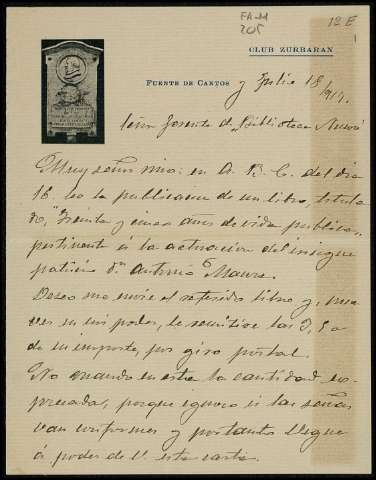 FA-M
205
12 E
1
CLUB ZURBARAN
FUENTE DE CANTOS y Julio 18/917.
Señor Gerente de "Biblioteca Nueva
Muy señor mio: en A. B. C. del dia
16. la publicacion de un libro, titula
do, "Treinta y cinco años de vida publica",
pertinente á la actuacion del insigne
patricio Dn Antonio Maura.
Deseo me envie el referido libro y, una
vez en mi poder, le remitiré las 3,50
de su importe, por giro postal.
No mando en esta la cantidad ex-
presada, porque ignoro si las señas
van conformes y por tanto llegue
á poder de V. esta carta.